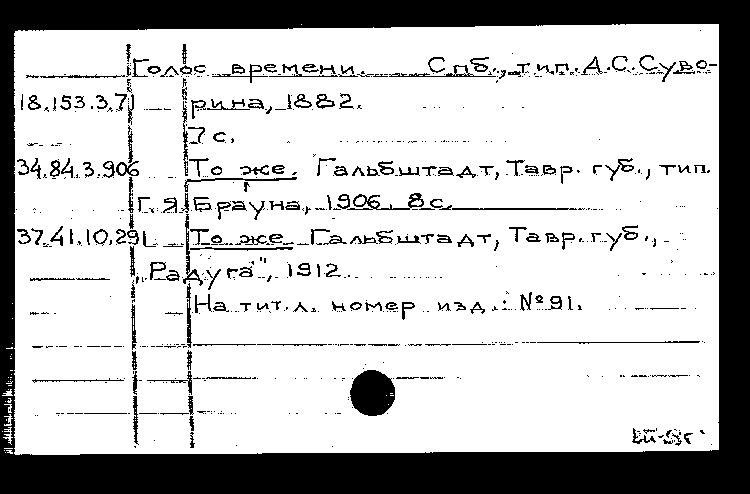 Голос времени. Спб., тип. А.С.Суво-
18.153.3.71 рина, 1882.
7 с.
34.84.3.906 То же. Гальбштадт, Тавр. губ., тип.
Г. Я Брауна, 1906. 8 с.
37.41.10.291 То же. Гальбштадт, Тавр. губ.,
"Радуга", 1912
На тит. л. номер изд.: №91.